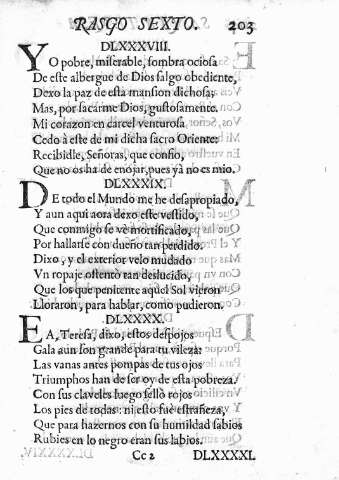 RASGO SEXTO. 203
DLXXXVIII.
YO pobre, miserable, sombra ociosa
De este albergue de Dios salgo obediente,
Dexo la paz de esta mansion dichosa;
Mas, por sacarme Dios, gustosamente.
Mi corazon en carcel venturosa
Cedo à este de mi dicha sacro Oriente:
Recibidle, Señoras, que confio,
Que no os ha de enojar, pues yà no es mio.
DLXXXIX.
DE todo el Mundo me he desapropiado,
Y aun aqui aora dexo este vestido,
Que conmigo se vè mortificado,
Por hallarse con dueño tan perdido.
Dixo, y el exterior velo mudado
Vn ropaje ostentò tan deslucido,
Que los que penitente aquel Sol vieron
Lloraron, para hablar, como pudieron.
DLXXXX.
EA, Teresa, dixo, estos despojos
Gala aun son grande para tu vileza:
Las vanas antes pompas de tus ojos
Triumphos han de ser oy de esta pobreza.
Con sus claveles luego sellò rojos
Los pies de todas: ni esto fue estrañeza,
Que para hazernos con su humildad sabios
Rubies en lo negro eran sus labios.
Cc 2 DLXXXXI.